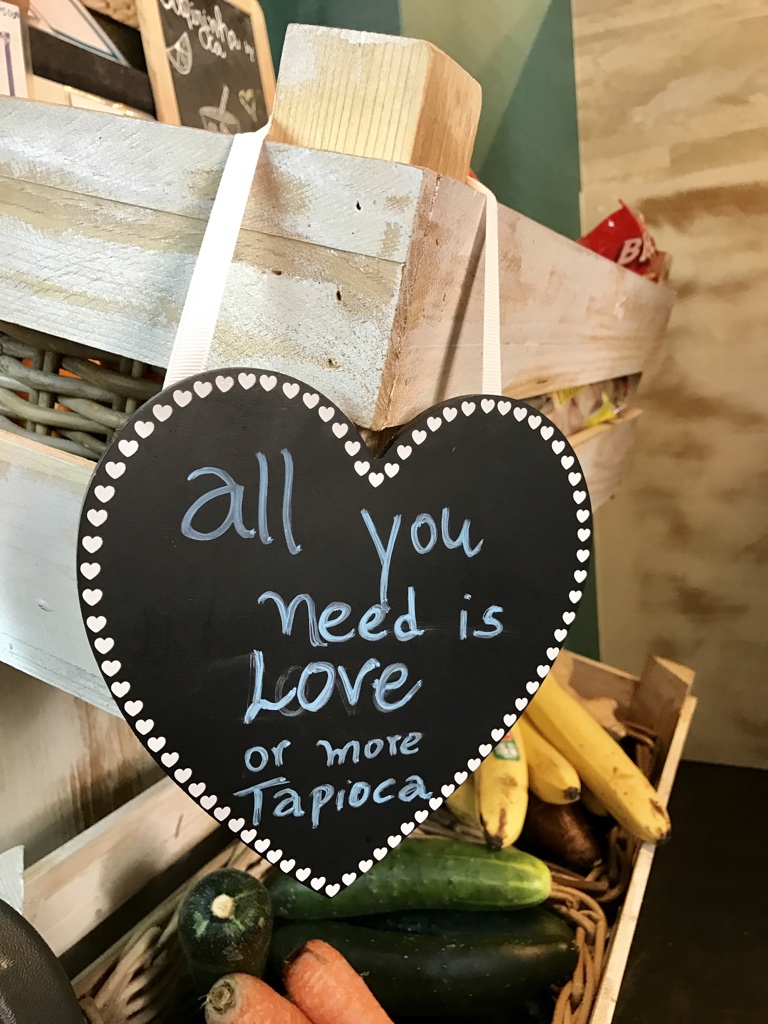 all you
need is
Love
or more
Tapioca